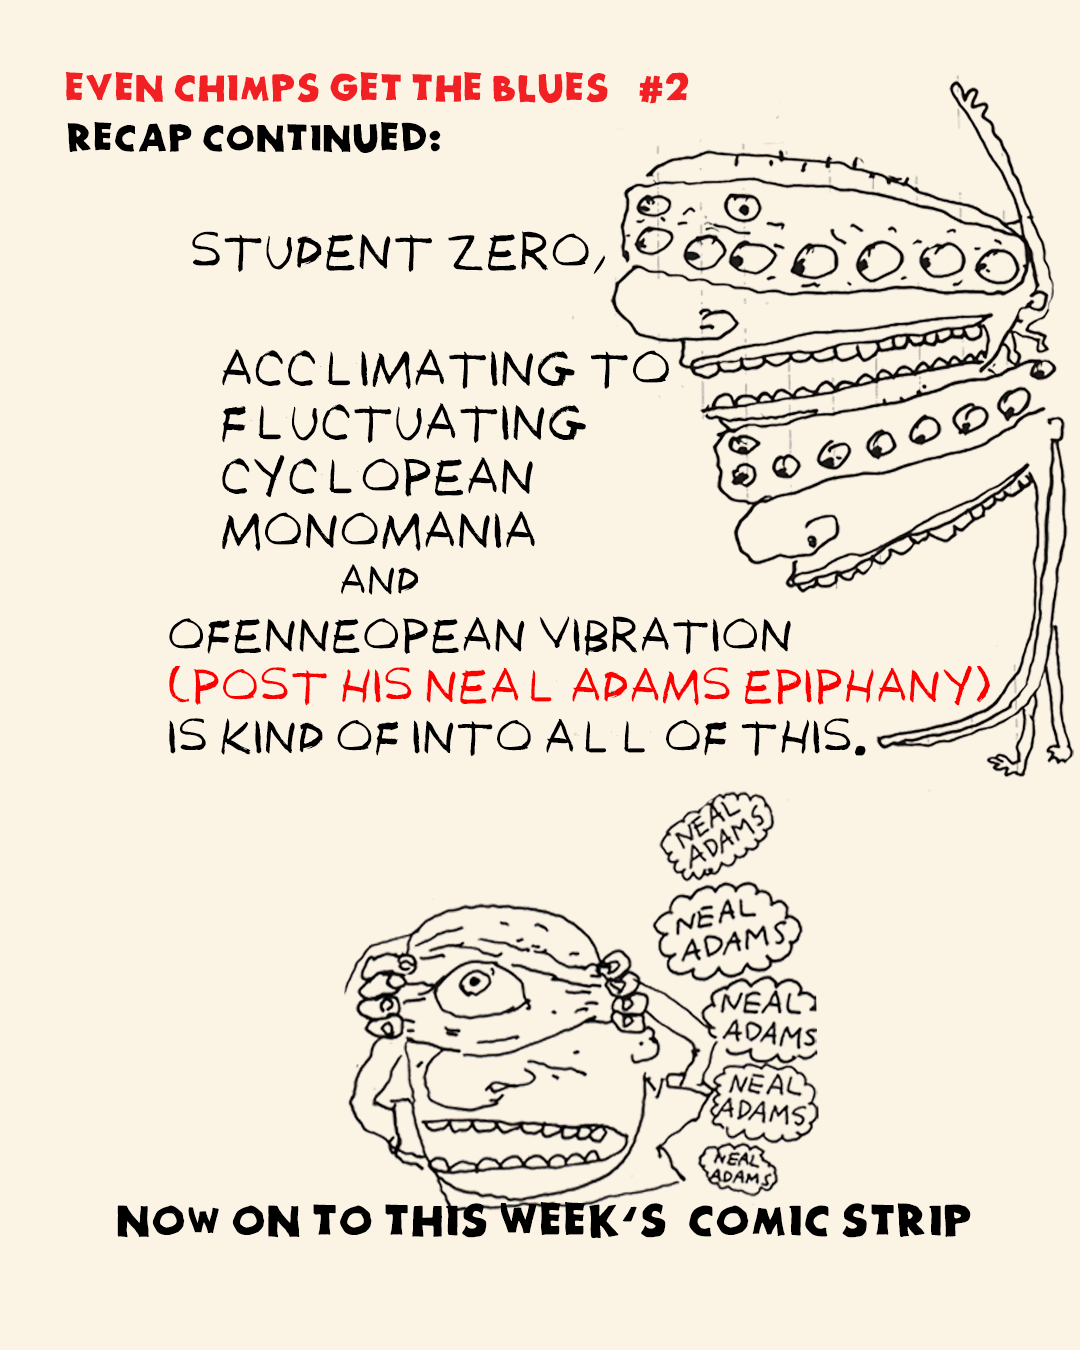 EVEN CHIMPS GET THE BLUES #2
RECAP CONTINUED:
STUDENT ZERO,
ACCLIMATING TO
FLUCTUATING
CYCLOPEAN
MONOMANIA
AND
OFENNEOPEAN VIBRATION
(POST HIS NEAL ADAMS EPIPHANY)
IS KIND OF INTO ALL OF THIS.
NEAL
ADAMS
NEAL
ADAMS
NEAL
ADAMS
NEAL
ADAMS
NEAL
ADAMS
NOW ON TO THIS WEEK'S COMIC STRIP